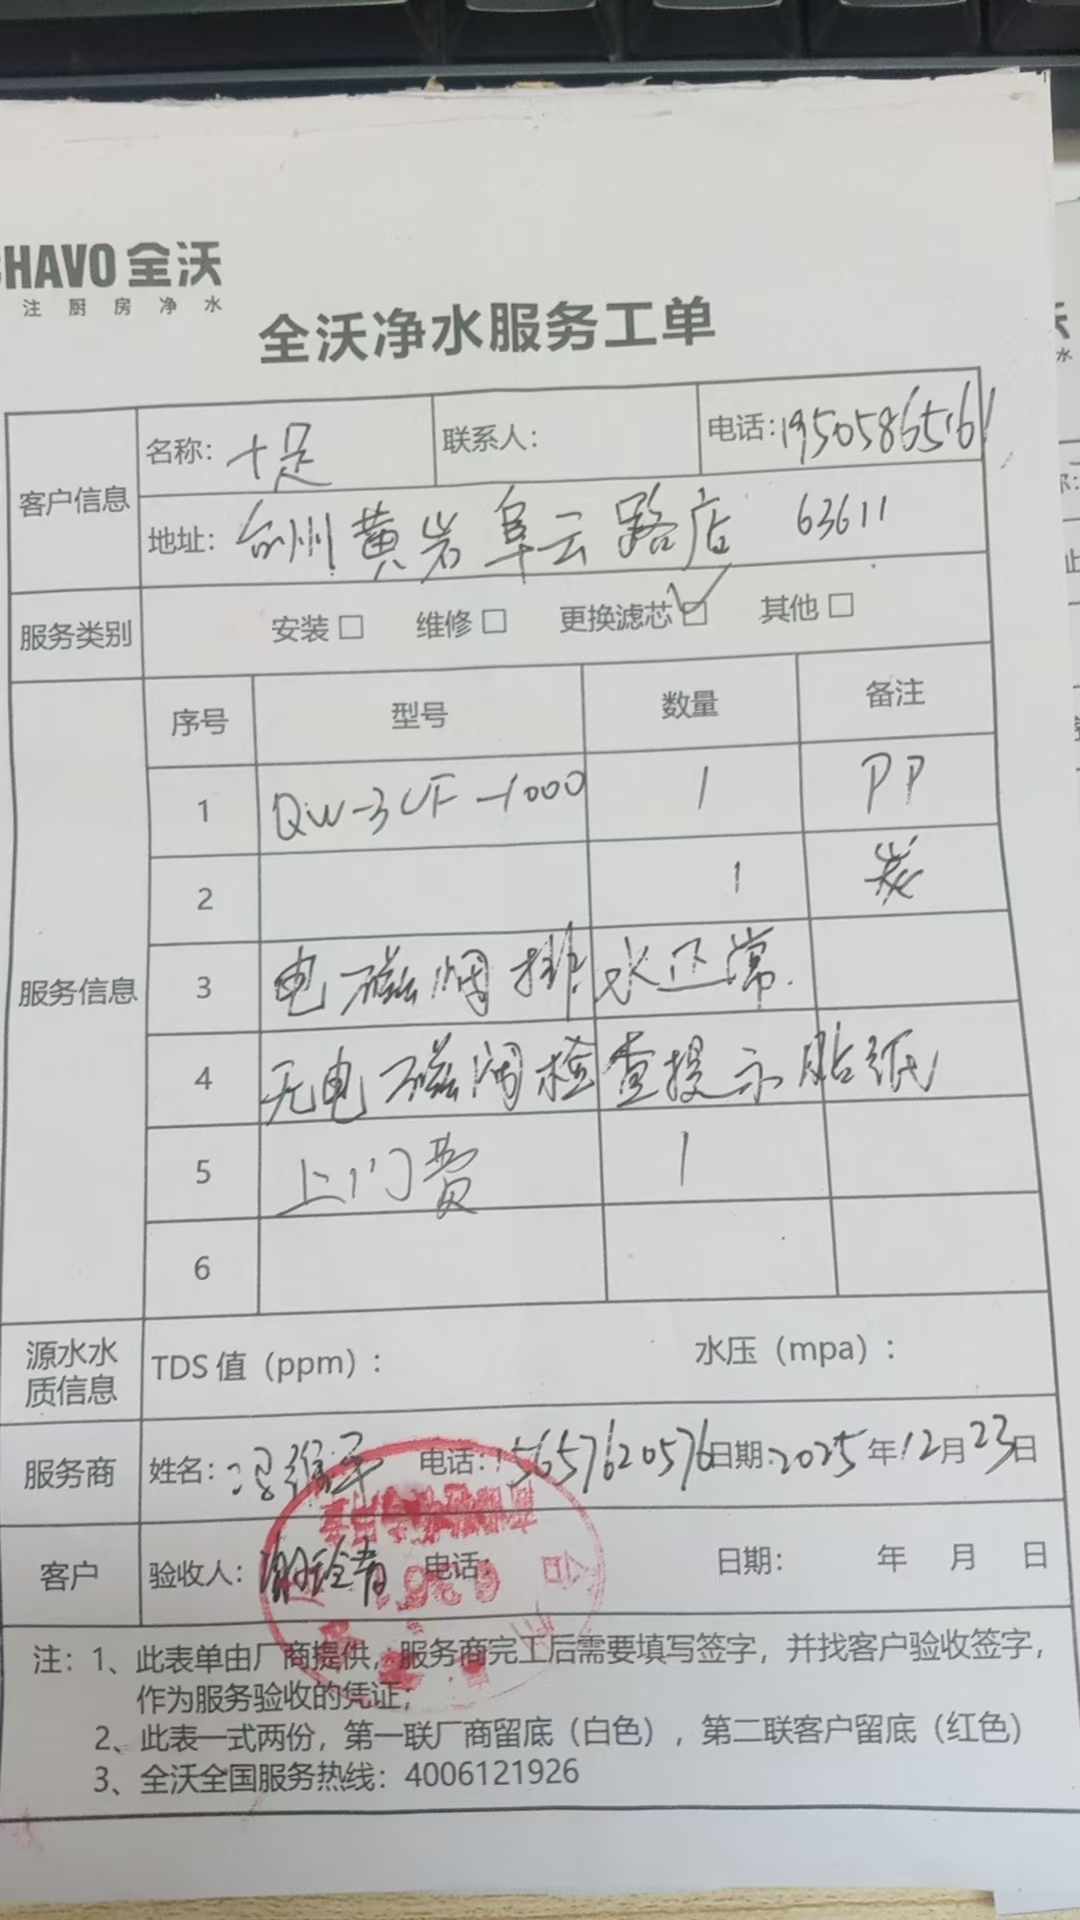 CHAVO 全沃
注厨房净水
全沃净水服务工单
客户信息 名称：十足 联系人： 电话：19505865161
地址：台州黄岩阜云路店 63611
服务类别 安装□ 维修□ 更换滤芯☑ 其他□
服务信息 序号 型号 数量 备注
1 QW-3UF-1000 1 PP
2 1 炭
3 电磁阀排水正常.
4 无电磁阀检查提示贴纸
5 上门费 1
6
源水水质信息 TDS 值（ppm）： 水压（mpa）：
服务商 姓名： 电话：15657620576 日期：2025年12月23日
客户 验收人： 电话： 日期： 年 月 日
注：1、此表单由厂商提供，服务商完工后需要填写签字，并找客户验收签字，
作为服务验收的凭证；
2、此表一式两份，第一联厂商留底（白色），第二联客户留底（红色）
3、全沃全国服务热线：4006121926